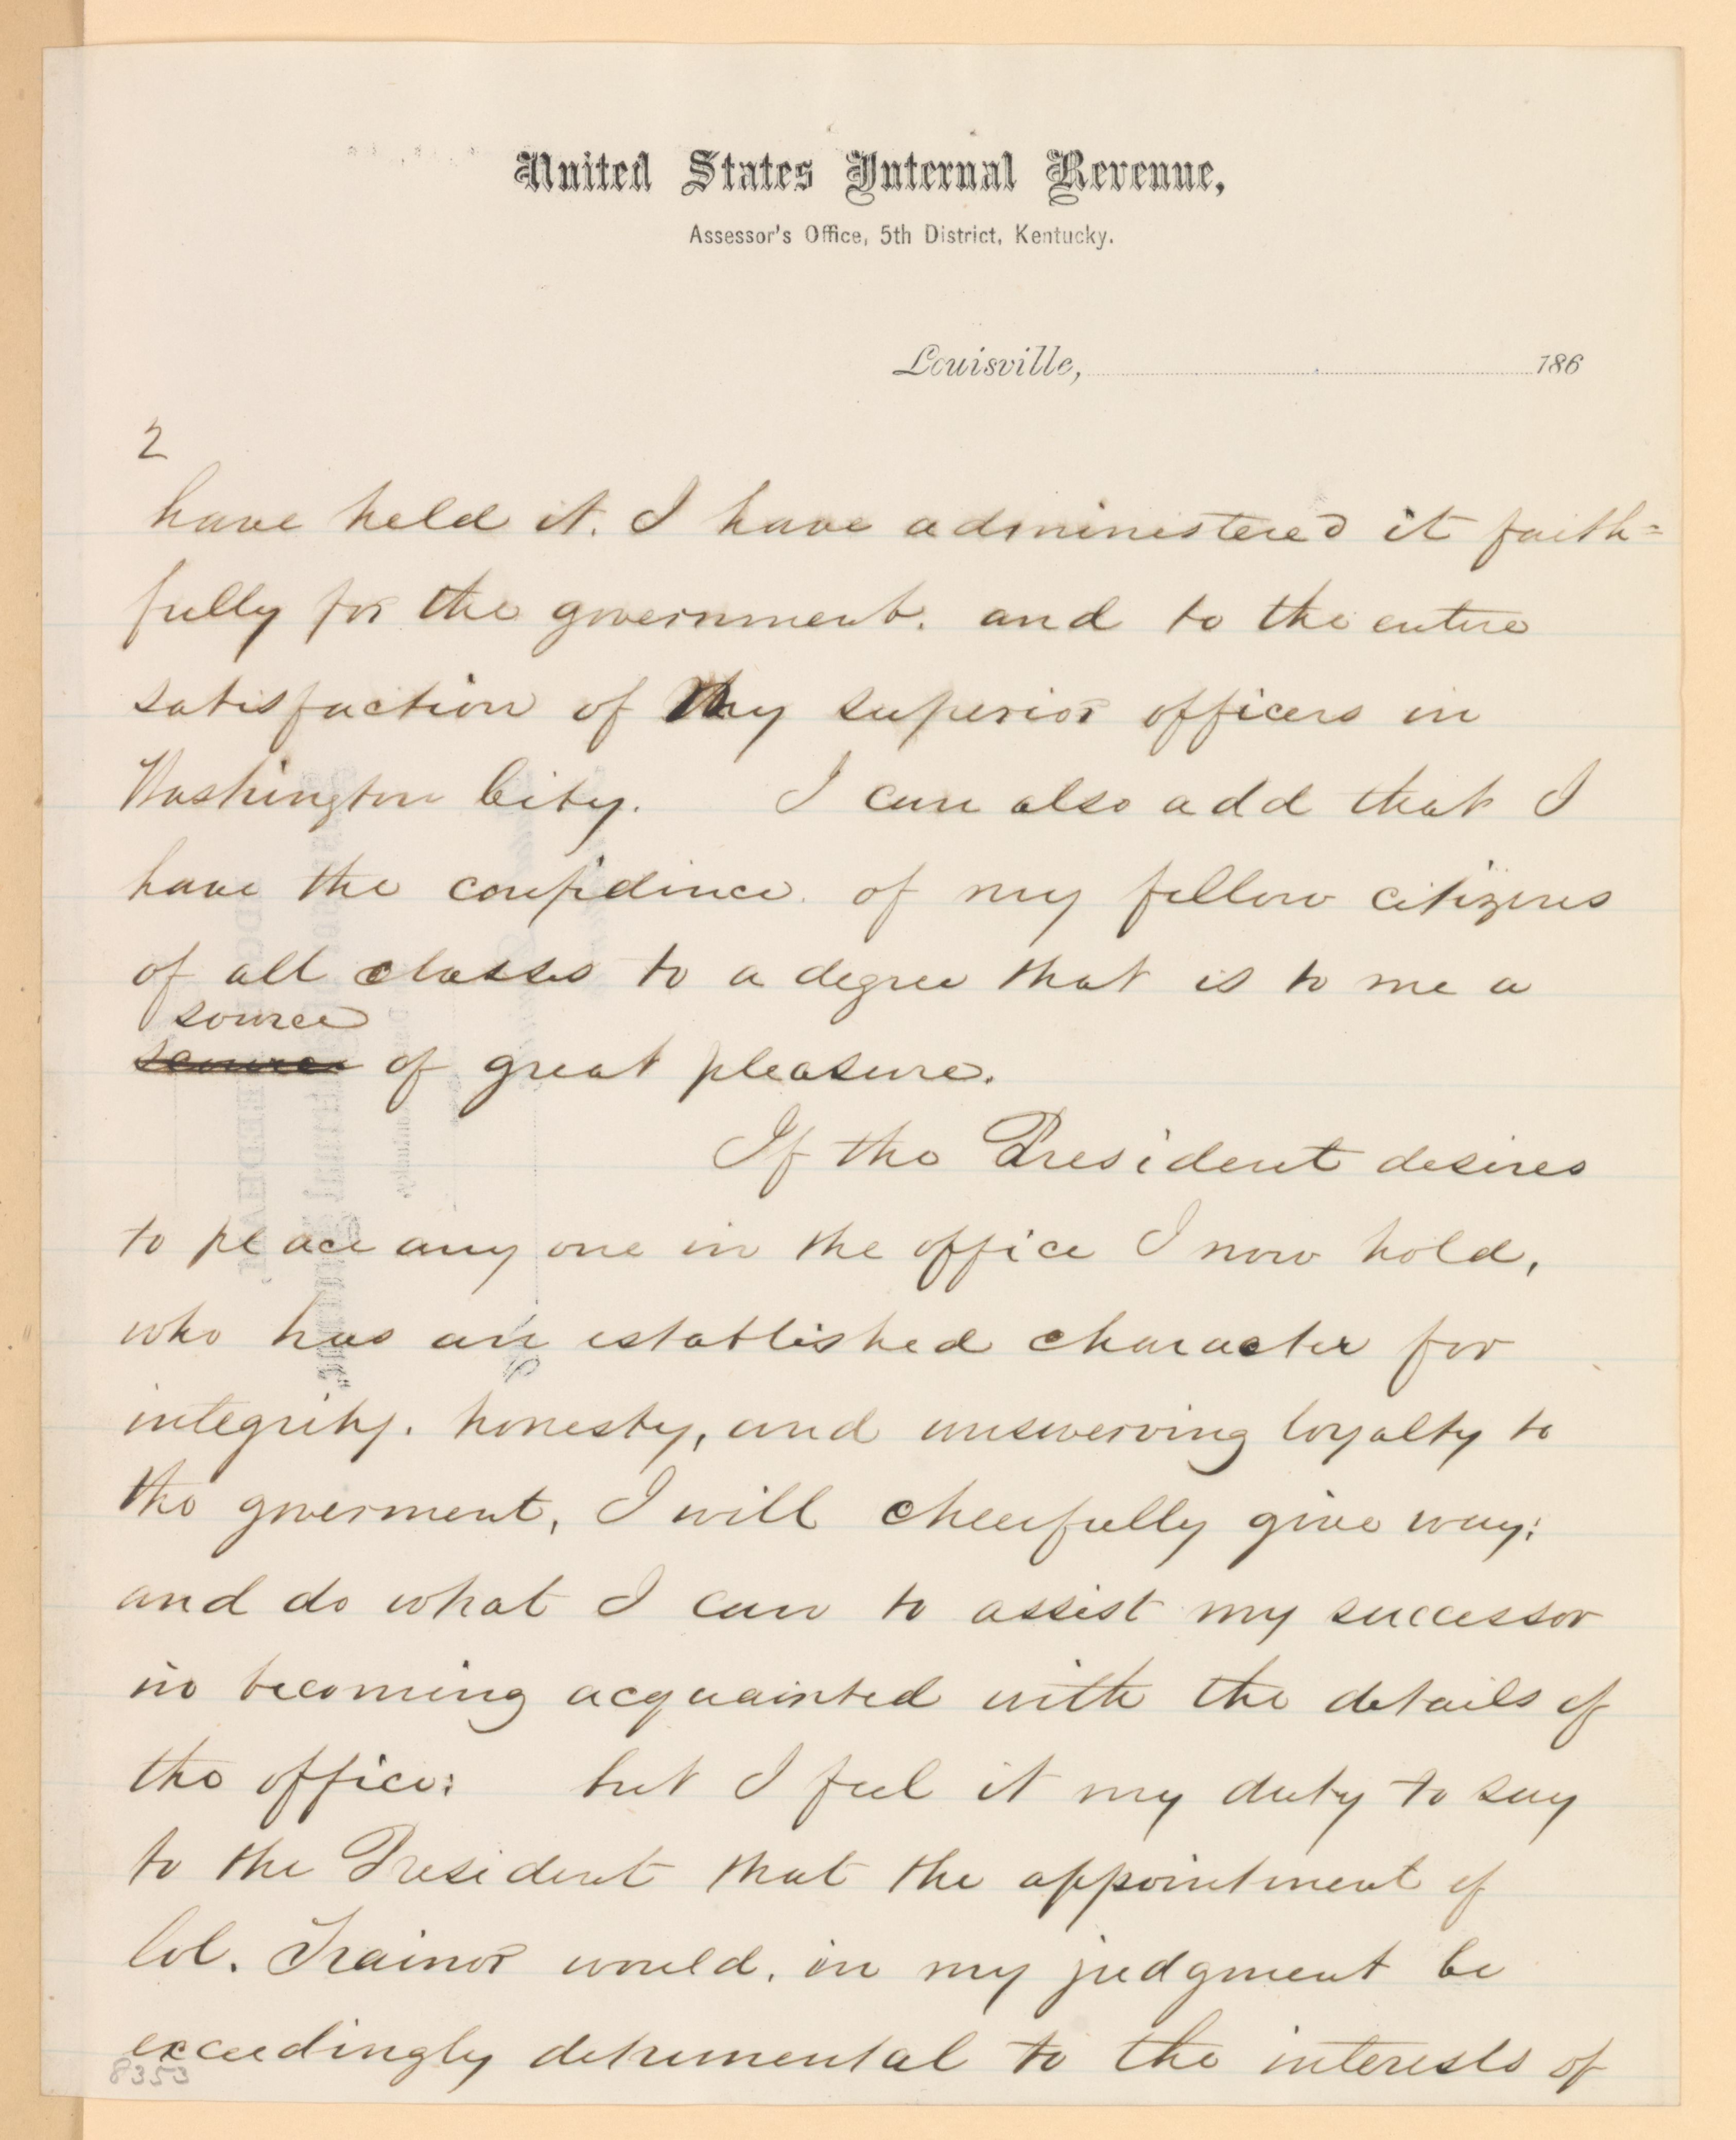 United States Internal Revenue,
Assessor's Office, 5th District, Kentucky.
Louisville, 186
2
have held it. I have administered it faith=
fully for the government. and to the entire
satisfaction of my superior officers in
Washington City. I can also add that I
have the confidince of my fellow citizens
of all classes to a degree that is to me a
source
of great pleasure.
If the President desires
to place any one in the office I now hold,
who has an established character for
integrity. honesty, and unswerving loyalty to
the goverment, I will cheerfully give way;
and do what I can to assist my successor
in becoming acquainted with the details of
the office; but I feel it my duty to say
to the President that the appointment of
Col. Trainor would, in my judgment be
exceedingly detrimental to the interests of
8353